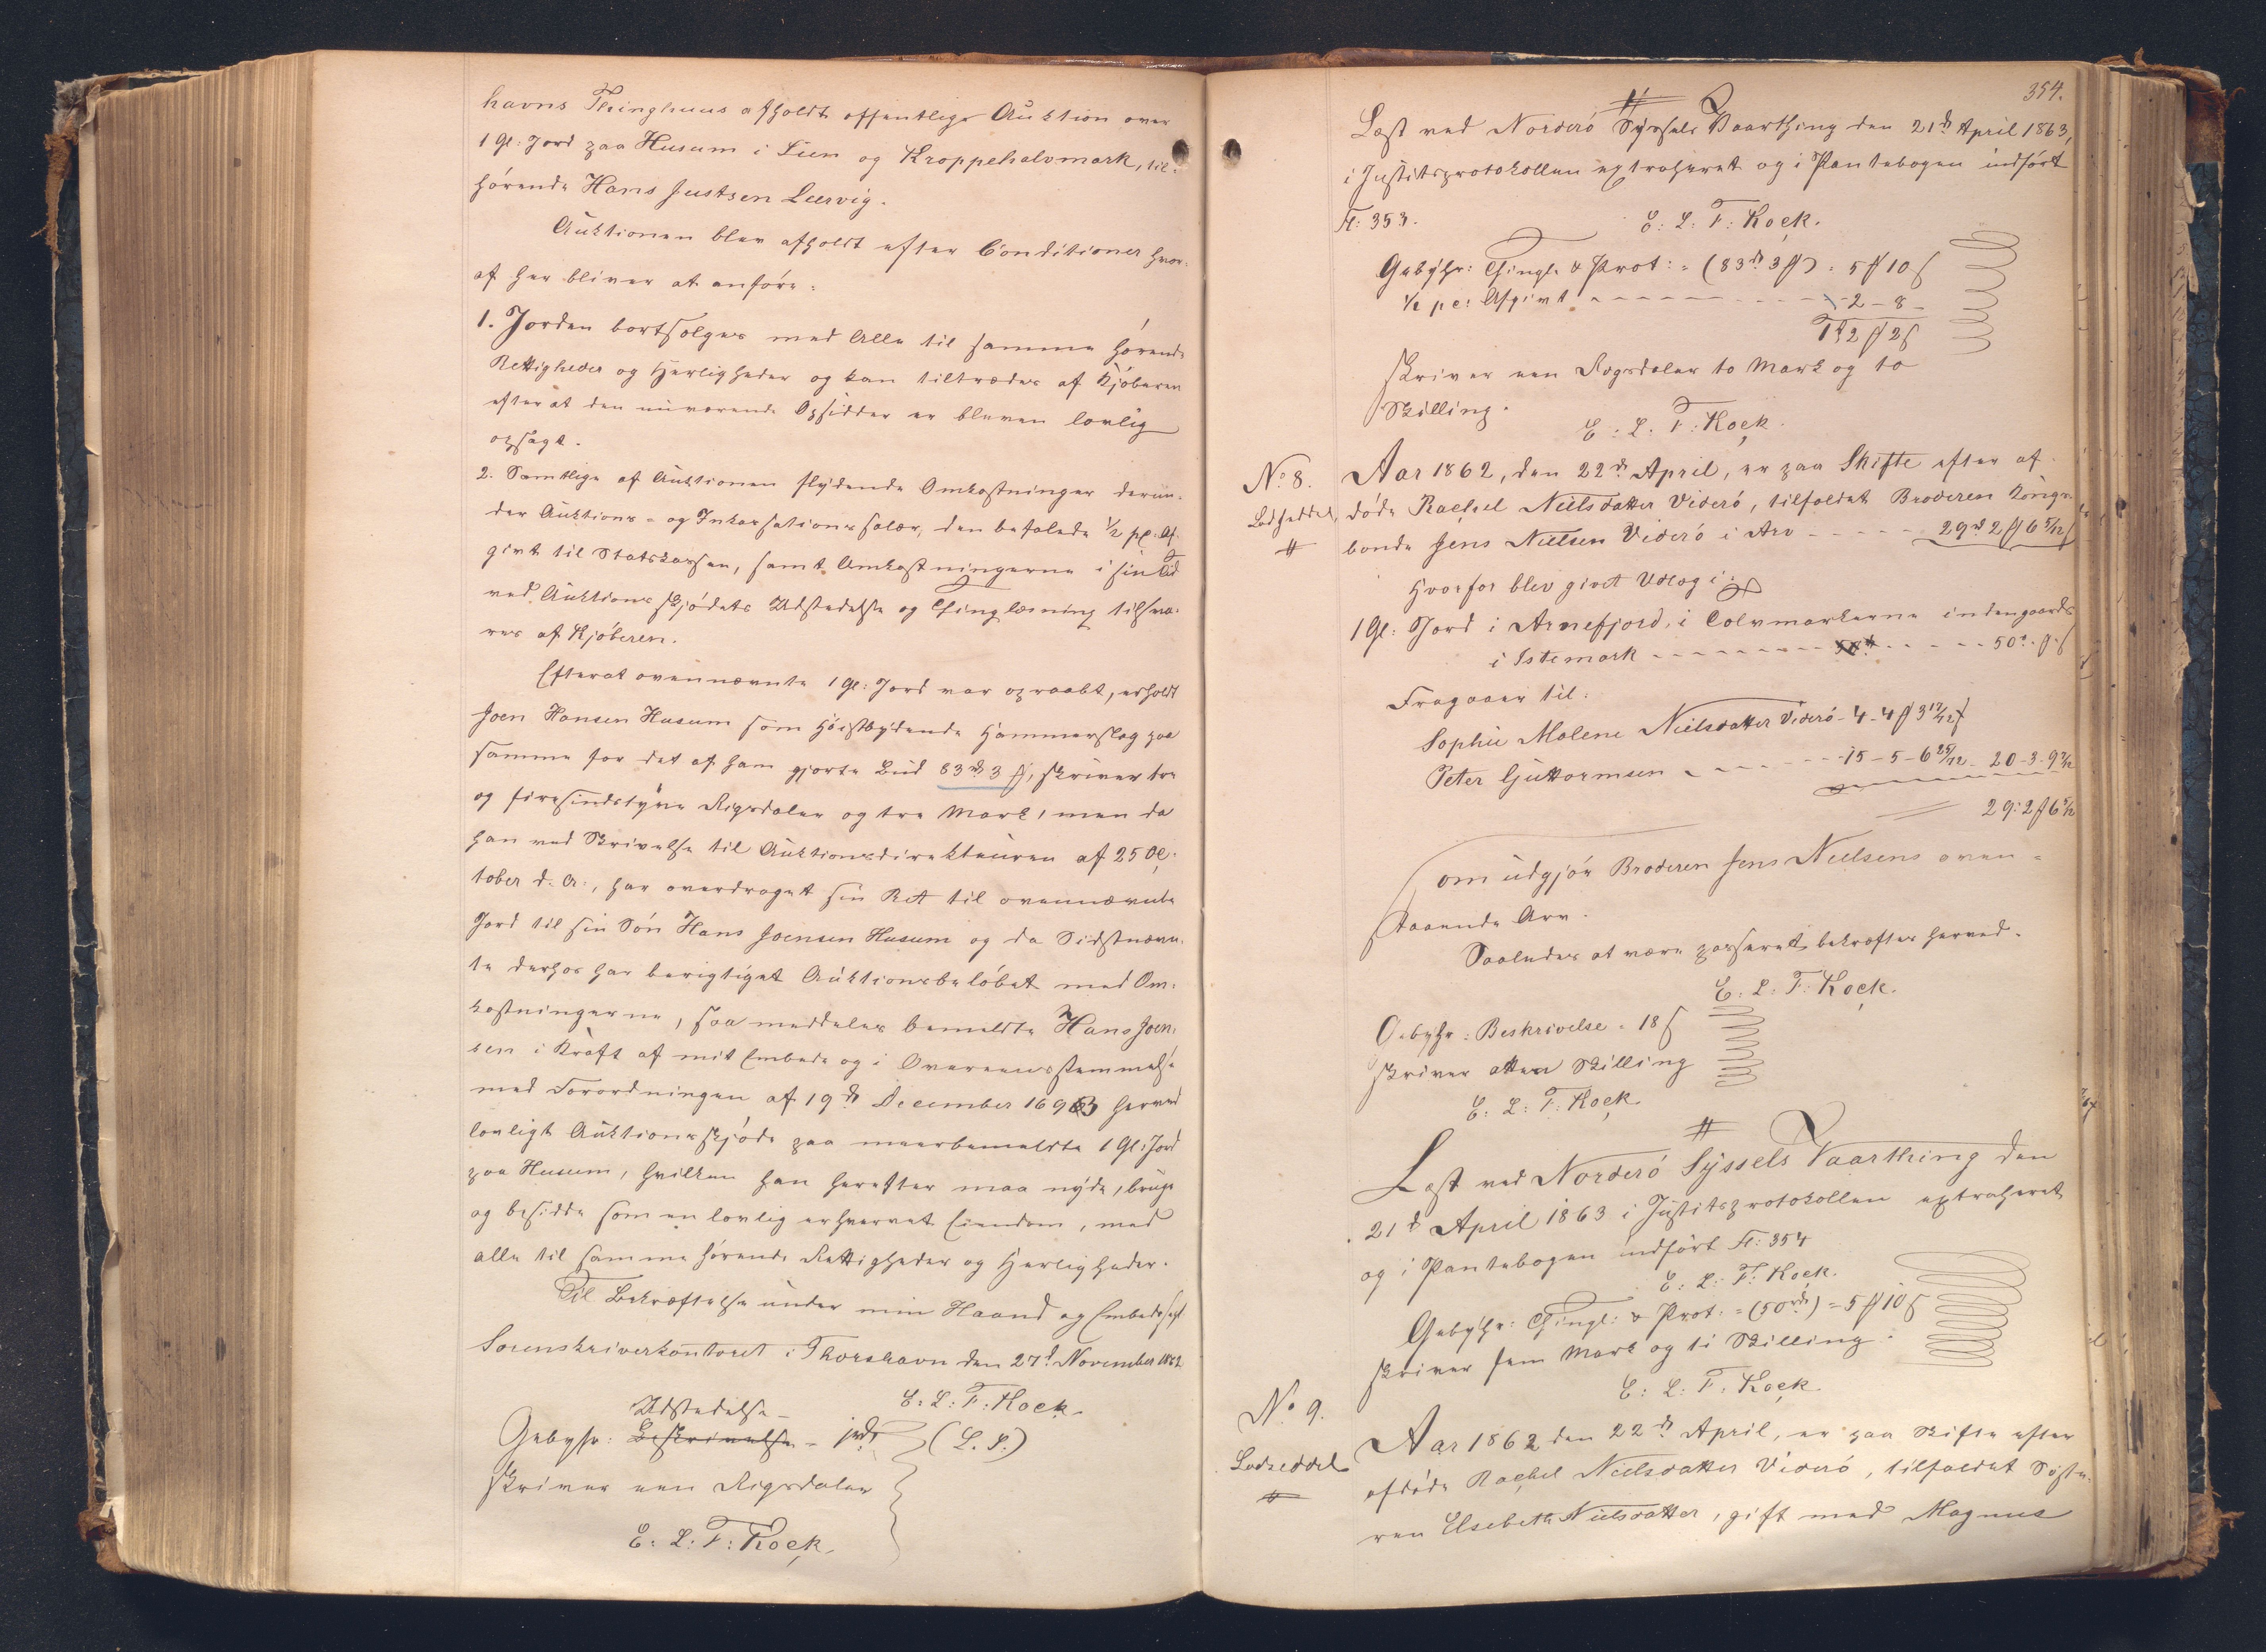 havns Thinghuus afholdt offentlig Auktion over
1 Gl: Jord paa Husum i Lien og Kroppehalvmark, til-
hørende Hans Justsen Leervig.
Auktionen blev afholdt efter Conditioner hvor-
af her bliver at anføre:
1. Jorden bortsælges med Alle til samme hørende
Rettigheder og Herligheder og kan tiltrædes af Kjøberen
efterat den nuværende Opsidder er bleven lovlig
opsagt.
2. Samtlige af Auktionen flydende Omkostninger derun-
der Auktions- og Inkassationssalær, den befalede ½ pC. Af-
givt til Statskassen, samt Omkostningerne i sin Tid
ved Auktionsskjødets Udstedelse og Thinglæsning tilsva-
res af Kjøberen.
Efterat ovennævnte 1 Gl: Jord var opraabt, erholdt
Joen Hansen Husum som Høistbydende Hammerslag paa
samme for det af ham gjorte Bud 83rd 3 ℳ, skriver tre
og firesindstyve Rigsdaler og tre Mark, men da
han ved Skrivelse til Auktionsdirekteuren af 25 Oc-
tober d. A., har overdraget sin Ret til ovennævnte
Jord til sin Søn Hans Joensen Husum og da Sidstnævn-
te derhos har berigtiget Auktionsbeløbet med Om-
kostningerne, saa meddeles bemeldte Hans Joen-
sen i Kraft af mit Embede og i Overeensstemmelse
med Forordningen af 19d December 1693 herved
lovligt Auktionsskjøde paa meerbemeldte 1 Gl: Jord
paa Husum, hvilken han herefter maa nyde, bruge
og besidde som en lovlig erhvervet Eiendom, med
alle til samme hørende Rettigheder og Herligheder.
Til Bekræftelse under min Haand og Embedssegl
Sorenskriverkontoret i Thorshavn den 27d November 1862
E: L: F: Kock.
Udstedelse
Gebyhr: Beskrivelse = 1rd (L. S.)
skriver een Rigsdaler
E: L: F: Kock.
354.
Læst ved Norderø Syssels Vaarthing den 21d April 1863,
i Justitsprotokollen extraheret og i Pantebogen indført
Fl: 353.
E: L: F: Kock.
Gebyhr: Thingl. & Prot: = (83rd 3 ℳ) = 5 ℳ 10 ß
½ pC: Afgivt - - - 2 - 8 -
1rd 2 ℳ 2 ß
skriver een Rigsdaler to Mark og to
Skilling.
E: L: F: Kock.
No 8.
Lodseddel
Aar 1862, den 22d April, er paa Skifte efter af-
døde Rachel Nielsdatter Viderø, tilfaldet Broderen Kongs-
bonde Jens Nielsen Viderø i Arv - - - 29rd 2 ℳ 6 5/12 ß
Hvorfor blev givet Udlæg i:
1 Gl: Jord i Arnefjord, i Colvmarkerne indengaards
i Istemark - - - 50rd - ℳ - ß
Fragaaer til:
Sophie Malene Nielsdatter Viderø - 4 - 4 ℳ 3 17/12 ß
Peter Guttormsen - - - 15 - 5 - 6 - 20 - 3 - 9
29: 2 ℳ 6 5/12
som udgjør Broderen Jens Nielsens oven-
staaende Arv.
Saaledes at være passeret bekræftes herved.
E: L: F: Kock.
Gebyhr: Beskrivelse = 18 ß
skriver atten Skilling
E: L: F: Kock.
Læst ved Norderø Syssels Vaarthing den
21d April 1863 i Justitsprotokollen extraheret
og i Pantebogen indført Fl: 354
E: L: F: Kock.
Gebyhr: Thingl: & Prot: = (50rd) = 5 ℳ 10 ß
skriver fem Mark og ti Skilling.
E: L: F: Kock.
No 9.
Lodseddel
Aar 1862 den 22d April, er paa Skifte efter
afdøde Rachel Nielsdatter Viderø, tilfaldet Søste-
ren Elsebeth Nielsdatter, gift med Magnus